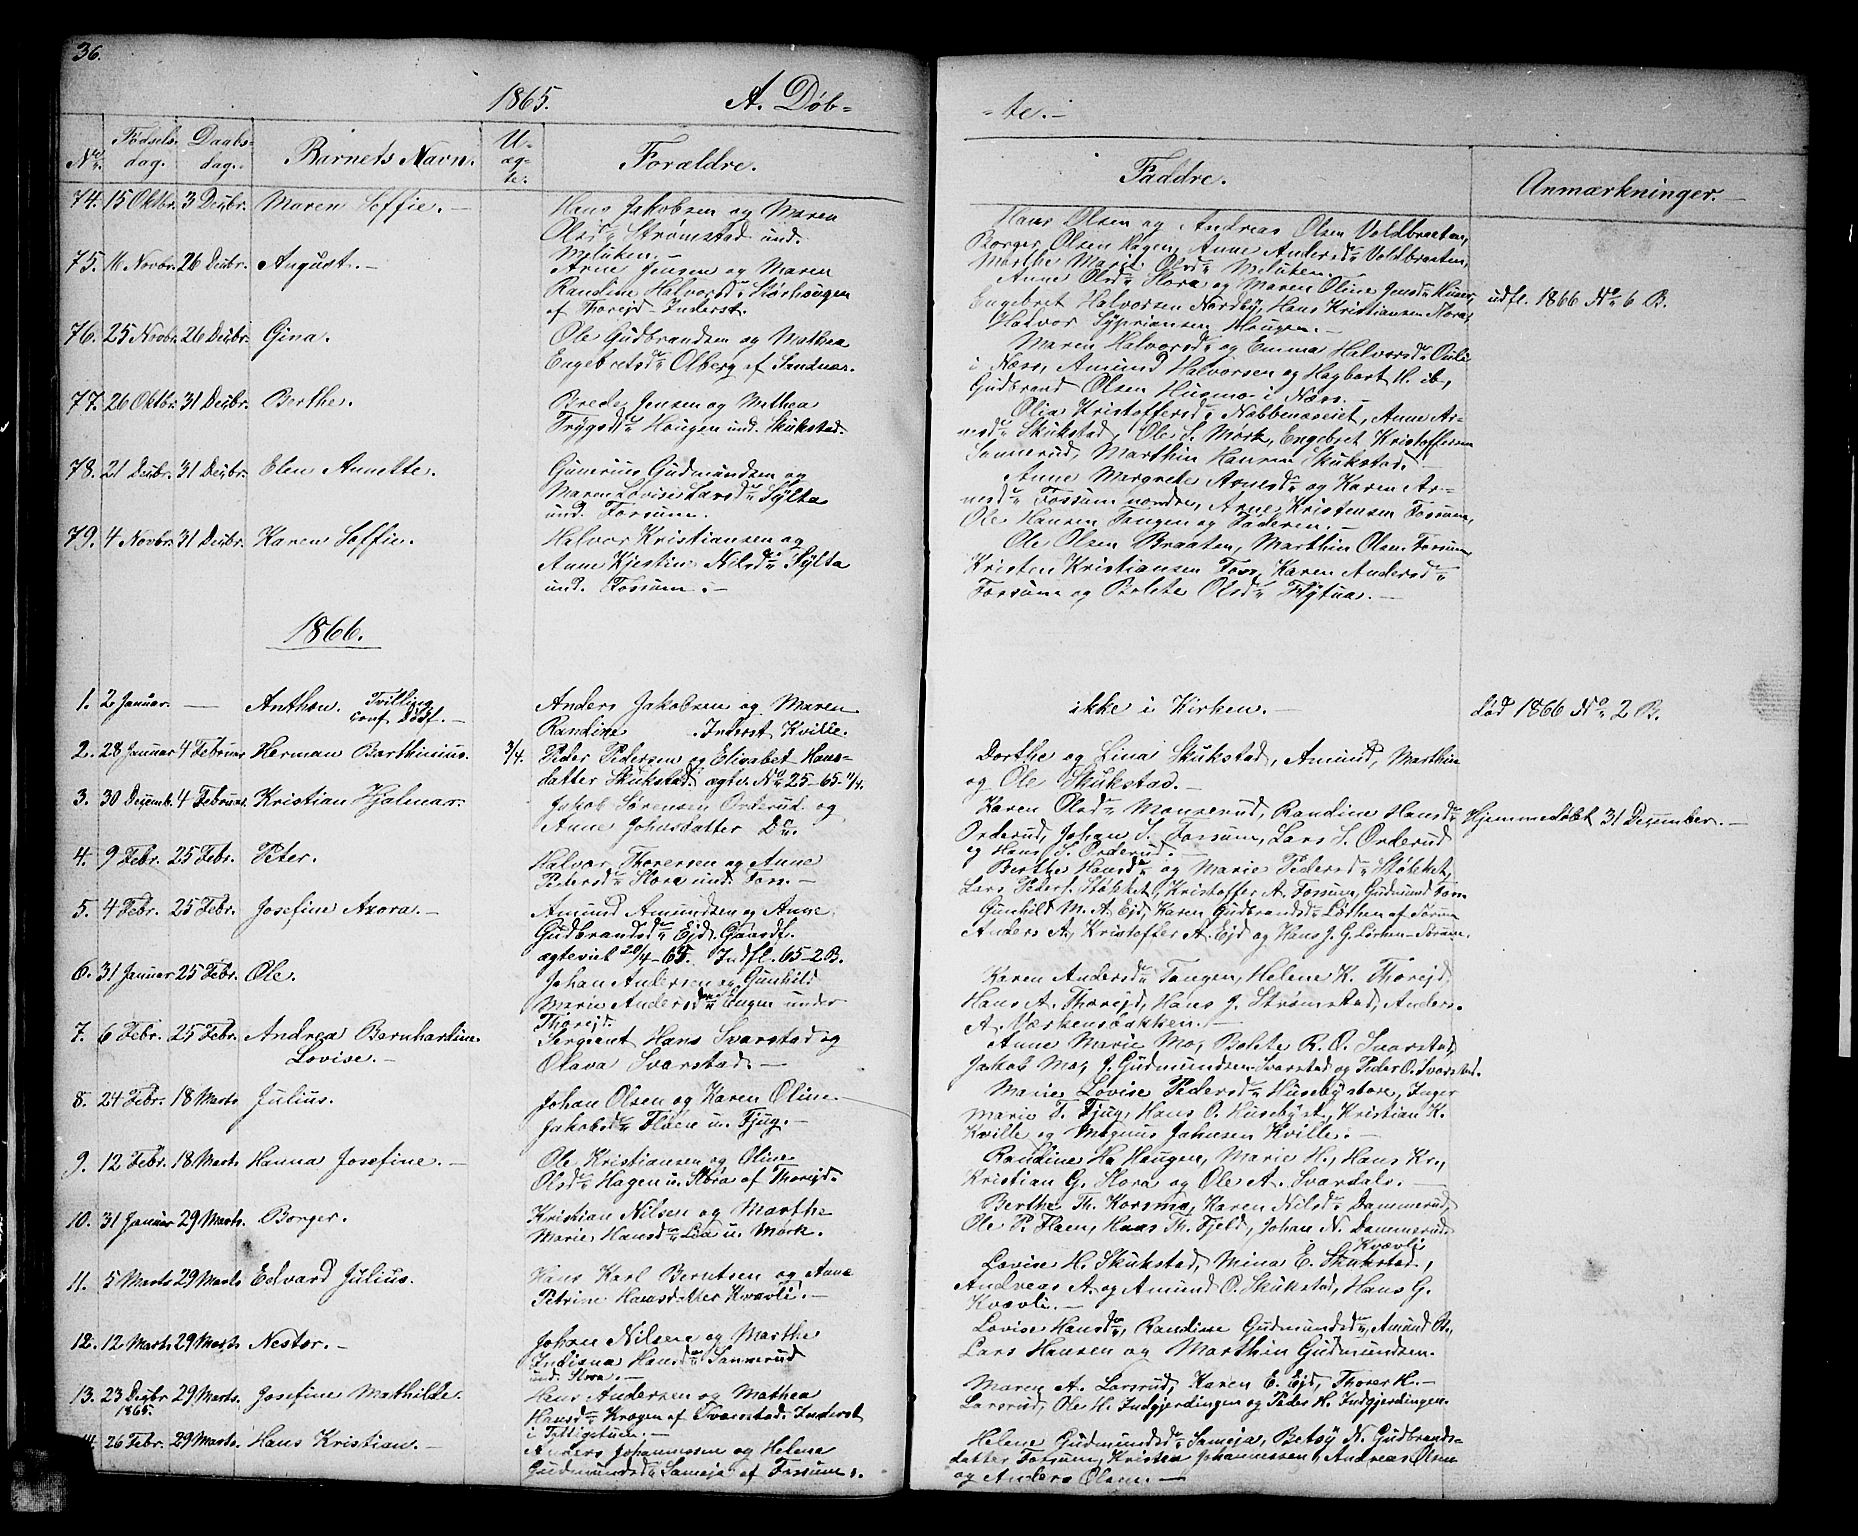 36.
1865. A. Døb-
-te.-
No. Fødsels- Daabs- Barnets Navn. U- Forældre. Faddre. Anmærkninger.
dag. dag. æg-
te.
74. 15 Oktbr. 3 Decbr. Maren Soffie.- Hans Jakobsen og Maren
Olsdr Strømstad und.
Meluken.-
Hans Olsen og Andreas Olsen Voldbraaten,
Borger Olsen Hagen, Anne Andersdr Voldbraaten,
Marthe Marit Olsdr Meluken.
75. 11 Novbr. 26 Decbr. August.- Arne Jensen og Maren
Randine Halvorsdr Størhougen
af Thorejd Inderst.
Anne Olsdr Hora og Maren Oline Jensdr
Engebret Halvorsen Nordby, Hans Kristiansen Hora, udfl. 1866 No 6 B.
Halvor Sypriansen Hougen.-
76. 25 Novbr. 26 Decbr. Gina. Ole Gudbrandsen og Mathea
Engebretsdr Olberg af Sandnæs.
Maren Halvorsdr og Emma Halvorsdr
i Næss, Amund Halvorsen og Hagbart H. ib.,
Gudbrand Olsen Husmo i Næss.-
77. 26 Oktbr. 31 Decbr. Berthe. Brede Jensen og Mathea
Trygsdr Hougen und. Skukstad.
Olia Kristoffersdr Nabbenæseiet, Anne Ar-
nesdr Skukstad, Ole S. Mørk, Engebret Kristoffersen
Sannerud, Marthin Hansen Skukstad.-
78. 21 Decbr. 31 Decbr. Elen Annette. Gunerius Gudmundsen og
Maren Lovise Larsdr Sylta
und. Fossum.
Anne Margrete Arnesdr og Karen Ar-
nesdr Fossum nordre, Arne Kristensen Fossum,
Ole Hansen Tangen og Faderen.-
79. 4 Novbr. 31 Decbr. Karen Soffie. Halvor Kristiansen og
Anne Kjestine Nilsdr Sylta
und. Fossum.-
Ole Olsen Braaten, Marthin Olsen Fossum,
Kristen Kristiansen Foss, Karen Andersdr
Fossum og Bolete Olsdr Flytua.-
1866.
1. 2 Januar. - Anthon. Tvilling
conf. Dødf.-
Anders Jakobsen og Maren
Randine Inderst Kville.
ikke i Kirken.- død 1866 No 2 B.
2. 28 Januar 4 Februar Herman Barthinius. 3/4. Peder Pedersen og Elisabet Hans-
datter Skukstad. ægtev. No 25-65-11/4.
Dorthe og Lina Skukstad, Amund, Marthin
og Ole Skukstad.-
3. 30 Decemb. 4 Februar. Kristian Hjalmar. Jakob Sørensen Orderud og
Anne Johnsdatter Do.
Karen Olsdr Monserud, Randine Hansdr Hjemmedøbt 31 December.-
Orderud, Johan S. Fossum, Lars S. Orderud
og Hans S. Orderud.-
4. 9 Febr. 25 Febr. Peter. Halvor Thoresen og Anne
Pedersdr Hora und. Foss.-
Berthe Hansdr og Marie Pedersdr Støkket,
Lars Peders. Støkket, Kristoffer A. Fossum, Gudmund Foss.
5. 4 Febr. 25 Febr. Josefine Axora.- Amund Amundsen og Anne
Gudbrandsdr Ejd. Gaardf.
ægteviet 20/4-65. Indfl. 65-2B.
Gunhild M. A. Ejd, Karen Gudbrandsdr Løthen af Sørum
Anders A, Kristoffer A. Ejd og Hans J. G. Løthen-Sørum.
6. 31 Januar 25 Febr. Ole. Johan Andersen og Gunhild
Marie Andersdr Tangen under
Thorejd.
Karen Andersdr Tangen, Helene K. Thorejd,
Hans A. Thorejd, Hans J. Strømstad, Anders
A. Værkensbakken.-
7. 6 Febr. 25 Febr. Andrea Bernhardine
Lovise.-
Sergeant Hans Svarstad og
Olava Svarstad.-
Anne Marie Mo, Bolete R. O. Svarstad,
Jakob Mo, J. Gudmundsen Svarstad og Peder O. Svarstad.
8. 24 Febr. 18 Marts Julius. Johan Olsen og Karen Oline
Jakobsdr Flaen u. Fjug.-
Marie Lovise Pedersdr Huseby store, Inger
Marie T. Fjug, Hans O. Huseby st., Kristian K.
Kville og Magnus Johnsen Kville.-
9. 12 Febr. 18 Marts Hanna Josefine.- Ole Kristiansen og Oline
Olsdr Hagen u. Hora af Thorejd.
Randine Ha Haugen, Marie H., Hans Kr.,
Kristian G. Hora og Ole A. Svardals.-
10. 31 Januar 29 Marts. Borger. Kristian Nilsen og Marthe
Marie Hansdr Lia u. Mørk.
Berthe Th. Korsmo, Karen Nilsdr Dammerud,
Ole P. Flaen, Hans Th. Fjeld, Johan N. Dammerud.
11. 5 Marts 29 Marts Edvard Julius. Hans Karl Berntsen og Anne
Petrine Hansdatter Kvævli.-
Kvævli
Lovise H. Skukstad, Mina E. Skukstad,
Andreas A. og Amund O. Skukstad, Hans G.
Kvævli.-
12. 12 Marts 29 Marts. Nestor.- Johan Nilsen og Marthe
Indiana Hansdr Sannerud
und. Hora.-
Lovise Hansdr, Randine Gudmundsdr, Amund O.,
Lars Hansen og Marthin Gudmundsen.
13. 23 Decbr 29 Marts. Josefine Mathilde.
1865.
Hans Andersen og Mathea
Hansdr Krogen af Svarstad. Inderst
i Tettigstuen.-
Maren A. Larsrud, Karen E. Ejd, Thorer H.-
Larsrud, Ole H. Indgjerdingen og Peder H. Indgjerdingen.
14. 26 Febr. 29 Marts. Hans Kristian.- Anders Johannessen og Helene
Gudmundsdr Sameja af Fossum.
Helene Gudmundsdr Sameja, Betsy N. Gudbrands-
datter Fossum, Kristen Johannessen, Andreas Olsen
og Anders Olsen.-